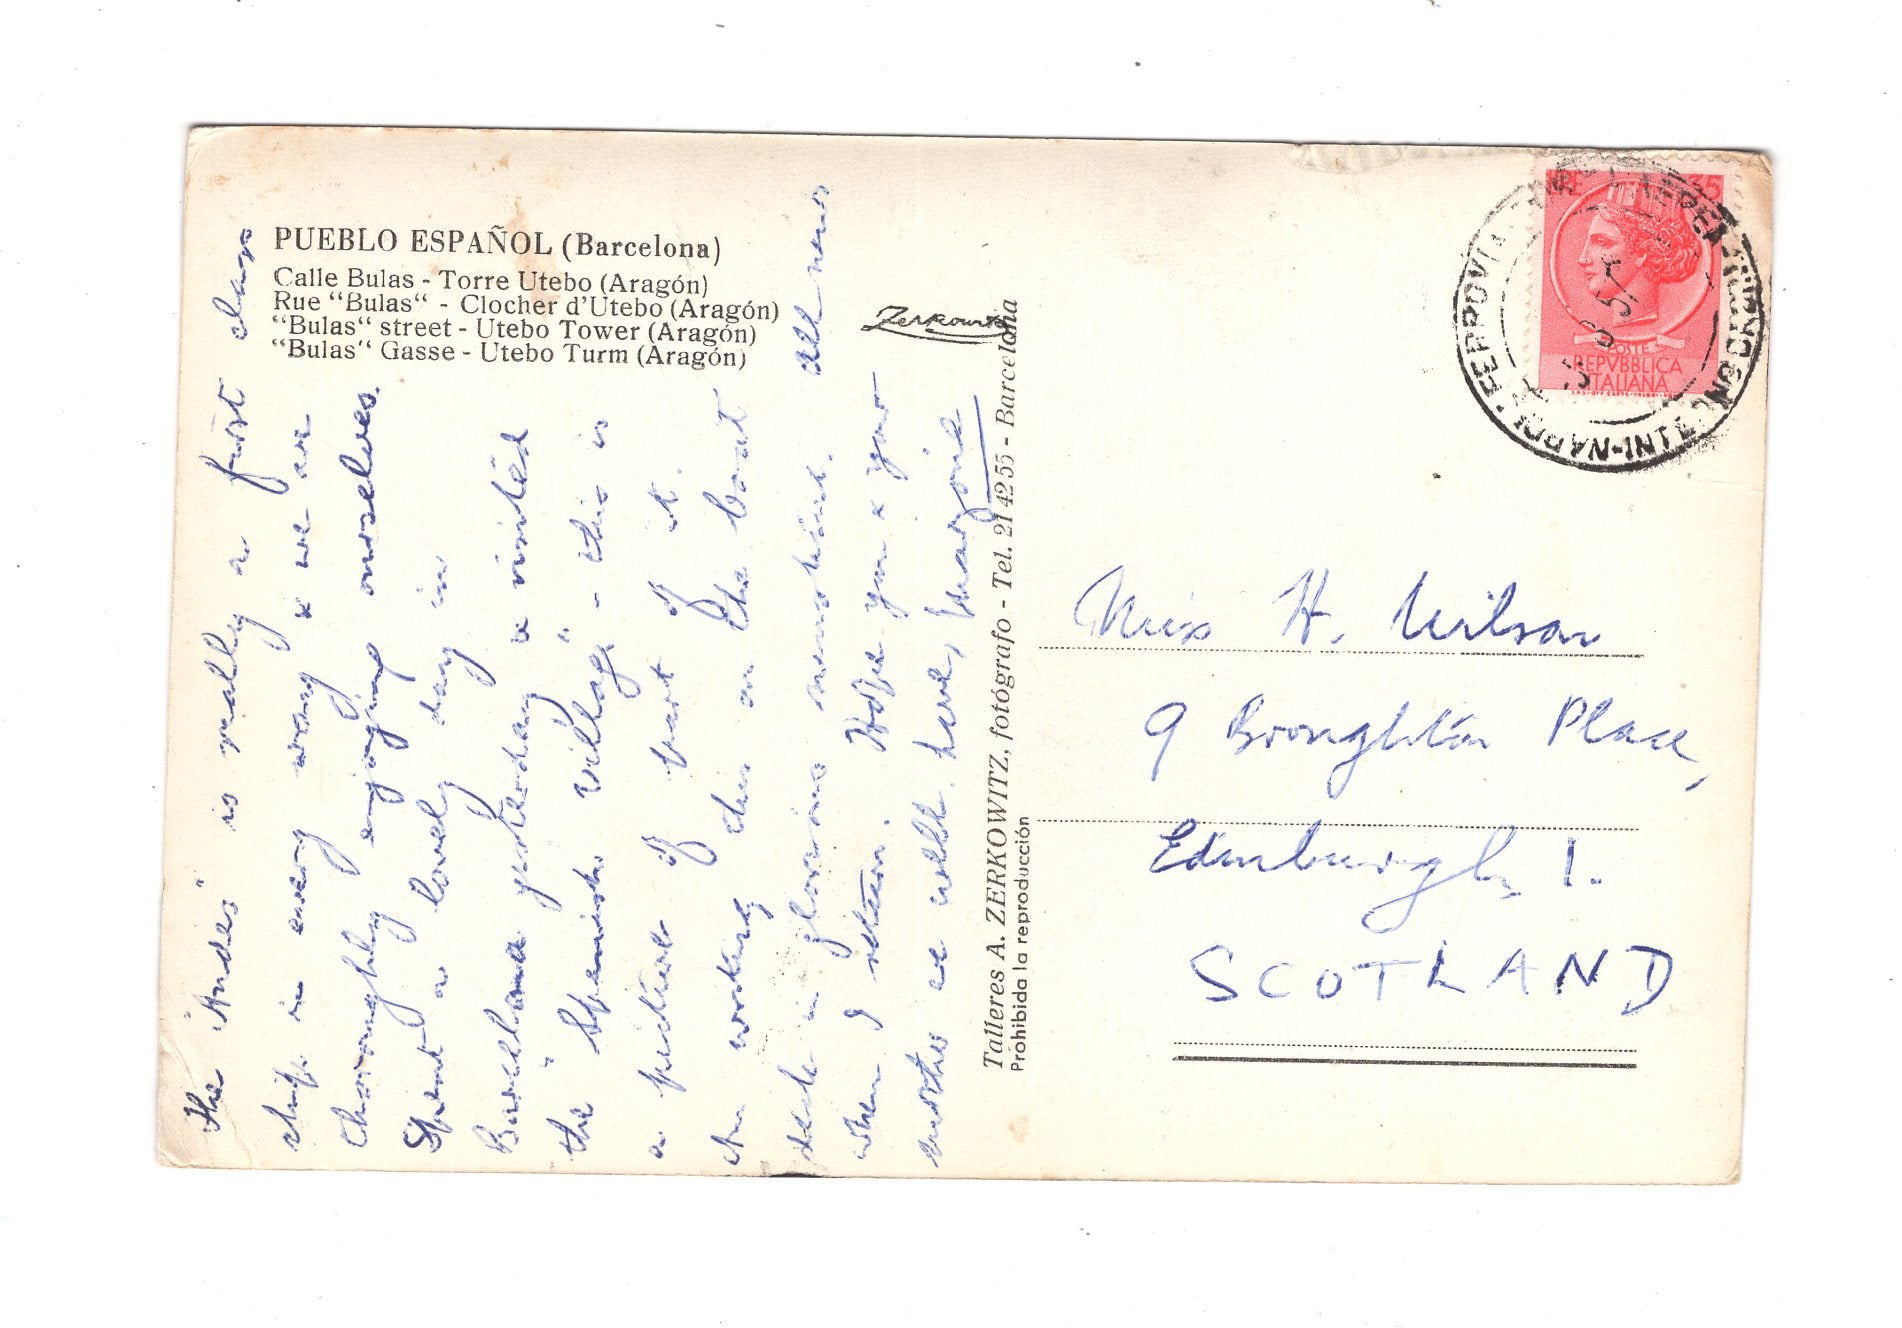 PUEBLO ESPAÑOL (Barcelona)
Calle Bulas - Torre Utebo (Aragón)
Rue "Bulas" - Clocher d'Utebo (Aragón)
"Bulas" street - Utebo Tower (Aragón)
"Bulas" Gasse - Utebo Turm (Aragón)
Zerkowitz
The "Andes" is really a first class
ship in every way & we are
thoroughly enjoying ourselves.
Spent a lovely day in
Barcelona yesterday & visited
the "Spanish Village" - this is
a picture of part of it.
Am writing this on the boat
deck in glorious sunshine. All news
when I return. Hope you & your
mother are well. Love, Marjorie
Talleres A. ZERKOWITZ, fotógrafo - Tel. 21 42 55 - Barcelona
Prohibida la reproducción
35
POSTE
REPVBBLICA
ITALIANA
FERROVIA
NAPOLI
Miss H. Wilson
9 Broughton Place,
Edinburgh, 1.
SCOTLAND